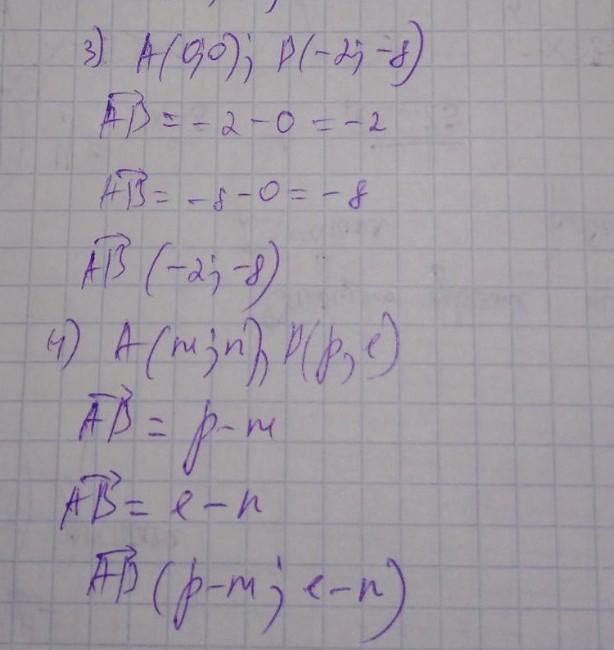 3) A(0;0); B(-2; -8)
\overrightarrow{AB} = -2 - 0 = -2
\overrightarrow{AB} = -8 - 0 = -8
\overrightarrow{AB} (-2; -8)
4) A(m; n), B(p, e)
\overrightarrow{AB} = p - m
\overrightarrow{AB} = e - n
\overrightarrow{AB} (p - m; e - n)